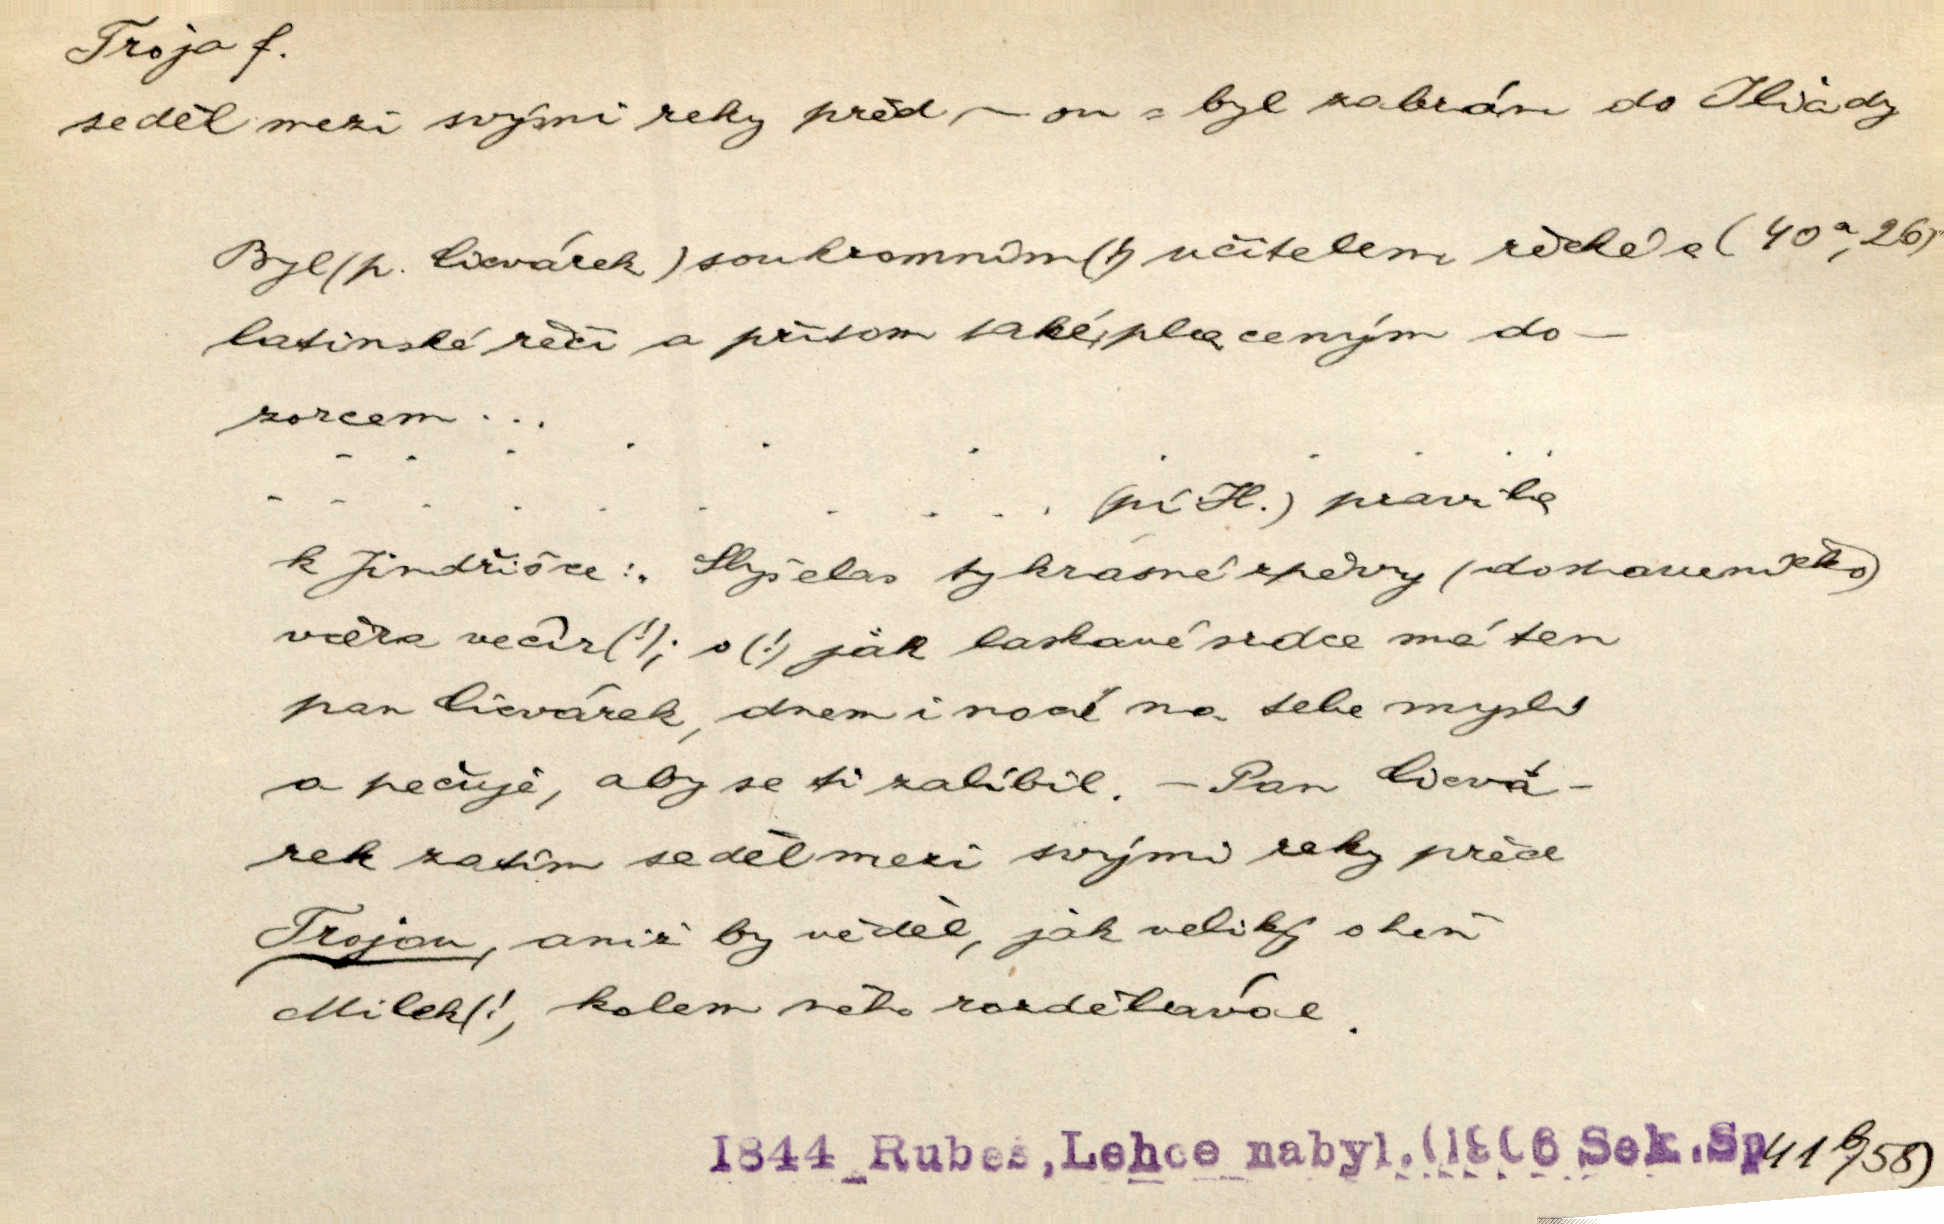 Troja f.
seděl mezi svými reky před ~ ou = byl zabrán do Iliady
Byl (p. Cicvárek) soukromním (!) učitelem řecké a (40ª, 26)
latinské řeči a přitom také placeným do-
zorcem ...
. . . . . . . . . .
. . . . . . . . . . (pí H.) pravila
k Jindřišce: „Slyšelas ty krásné zpěvy (dostaveníčko)
včéra večír (!); o (!) jak laskavé srdce má ten
pan Cicvárek, dnem i nocí na tebe myslí
a pečuje, aby se ti zalíbil. – Pan Cicvá-
rek zatím seděl mezi svými reky před
Trojou, aniž by věděl, jak veliký oheň
Milek (!, kolem něho rozdělával.
1844 Rubeš, Lehce nabyl. (1906 Sek. Sp 41 b/58)